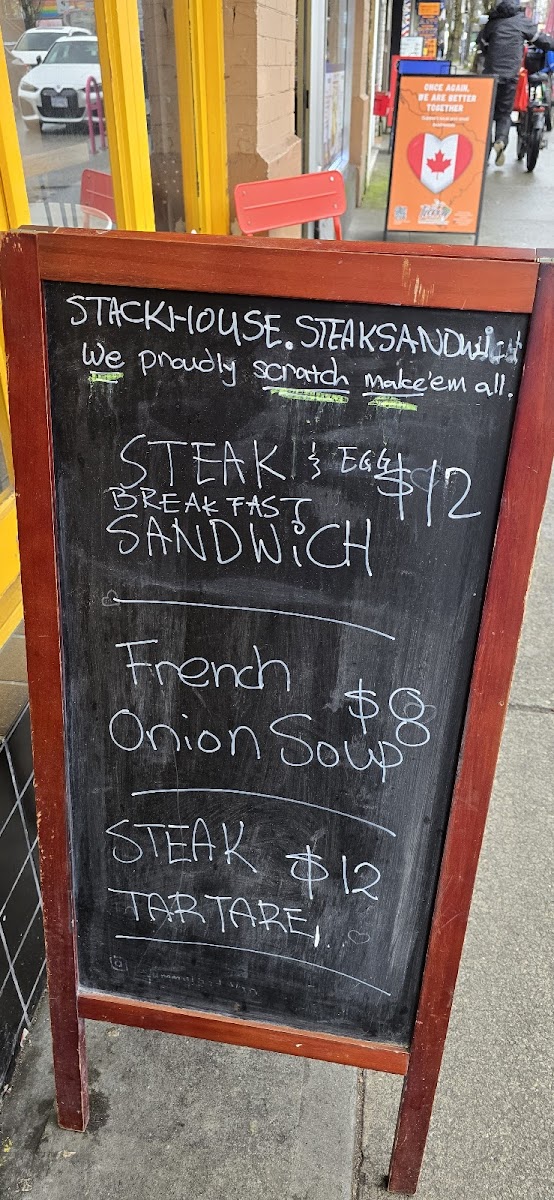 STACKHOUSE.STEAKSANDWICH
We proudly scratch make'em all.
STEAK & EGG $12
BREAKFAST
SANDWiCH
French
Onion Soup $8
STEAK $12
TARTARE
ONCE AGAIN,
WE ARE BETTER
TOGETHER